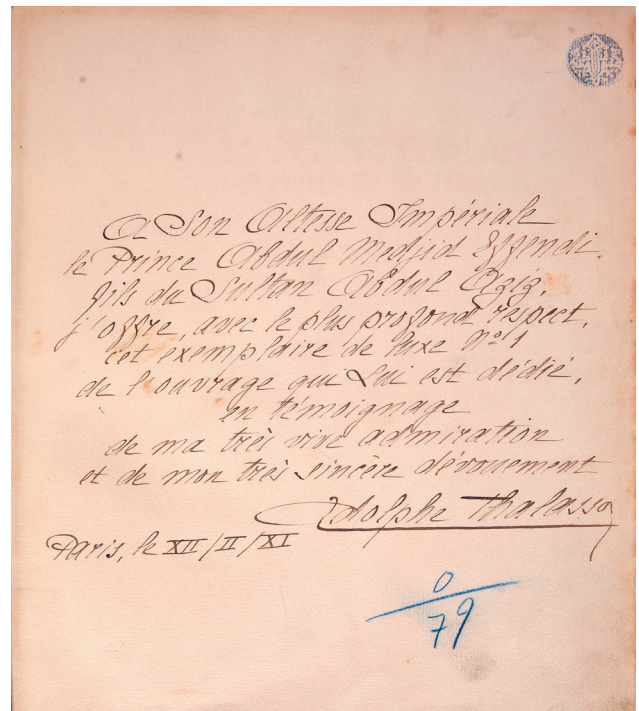 A Son Altesse Impériale
le Prince Abdul Medjid Effendi.
fils du Sultan Abdul Aziz,
j'offre, avec le plus profond respect,
cet exemplaire de luxe Nº 1
de l'ouvrage qui Lui est dédié,
en témoignage
de ma très vive admiration
et de mon très sincère dévouement
Adolphe Thalasso
Paris, le XII/II/XI
0
79